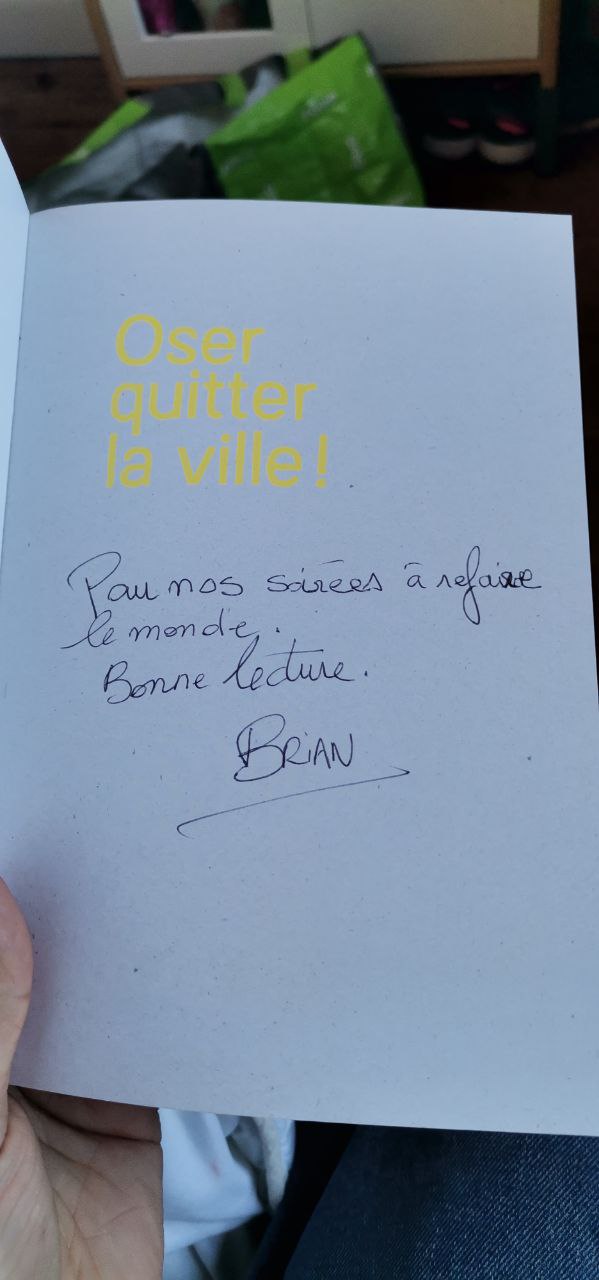 Oser
quitter
la ville !
Pour nos soirées à refaire
le monde.
Bonne lecture.
BRIAN